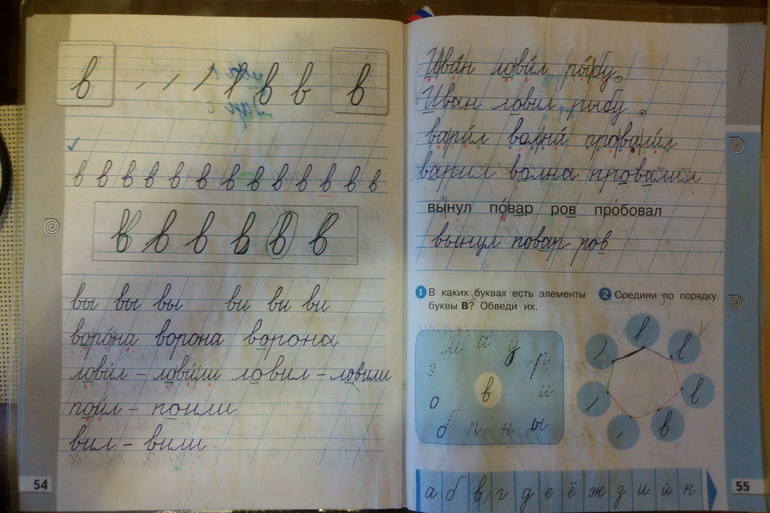 в в в в
в в в в в в в в в в в в в
в в в в в в
вы вы вы ви ви ви
воро́на ворона ворона
лови́л – лови́ли ловил – ловили
пои́л – поили
вил – вили
54
Ива́н лови́л ры́бу.
Иван ловил рыбу.
вари́л волна́ провали́л
варил волна провалил
вы́нул по́вар ров про́бовал
вынул повар ров
1 В каких буквах есть элементы
буквы В? Обведи их.
2 Соедини по порядку.
м а у р
з в и
о б п н ы
в в в в
а б в г д е ё ж з и й к
55